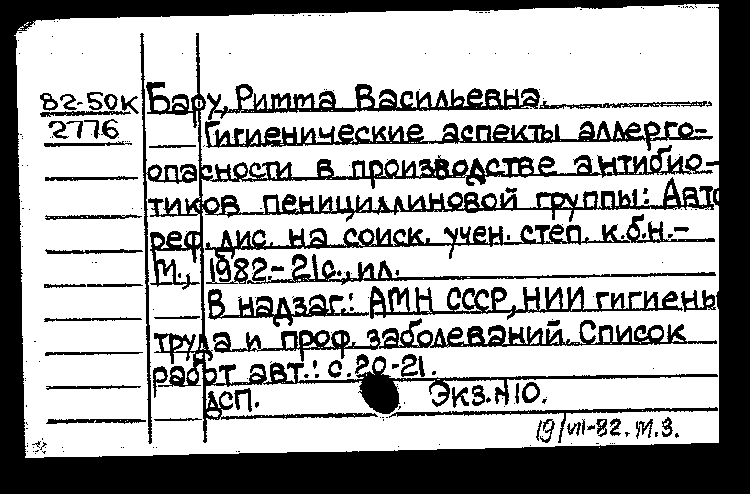 82-50к Бару, Ритта Васильевна.
2776 Гигиенические аспекты аллерго-
опасности в производстве антибио-
тиков пенициллиновой группы: Авто
реф. дис. на соиск. учен. степ. к.б.н.-
М., 1982.- 21с., ил.
В надзаг.: АМН СССР, НИИ гигиены
труда и проф. заболеваний. Список
работ авт.: с.20-21.
ДСП. Экз.№10.
19/VII-82. М.З.